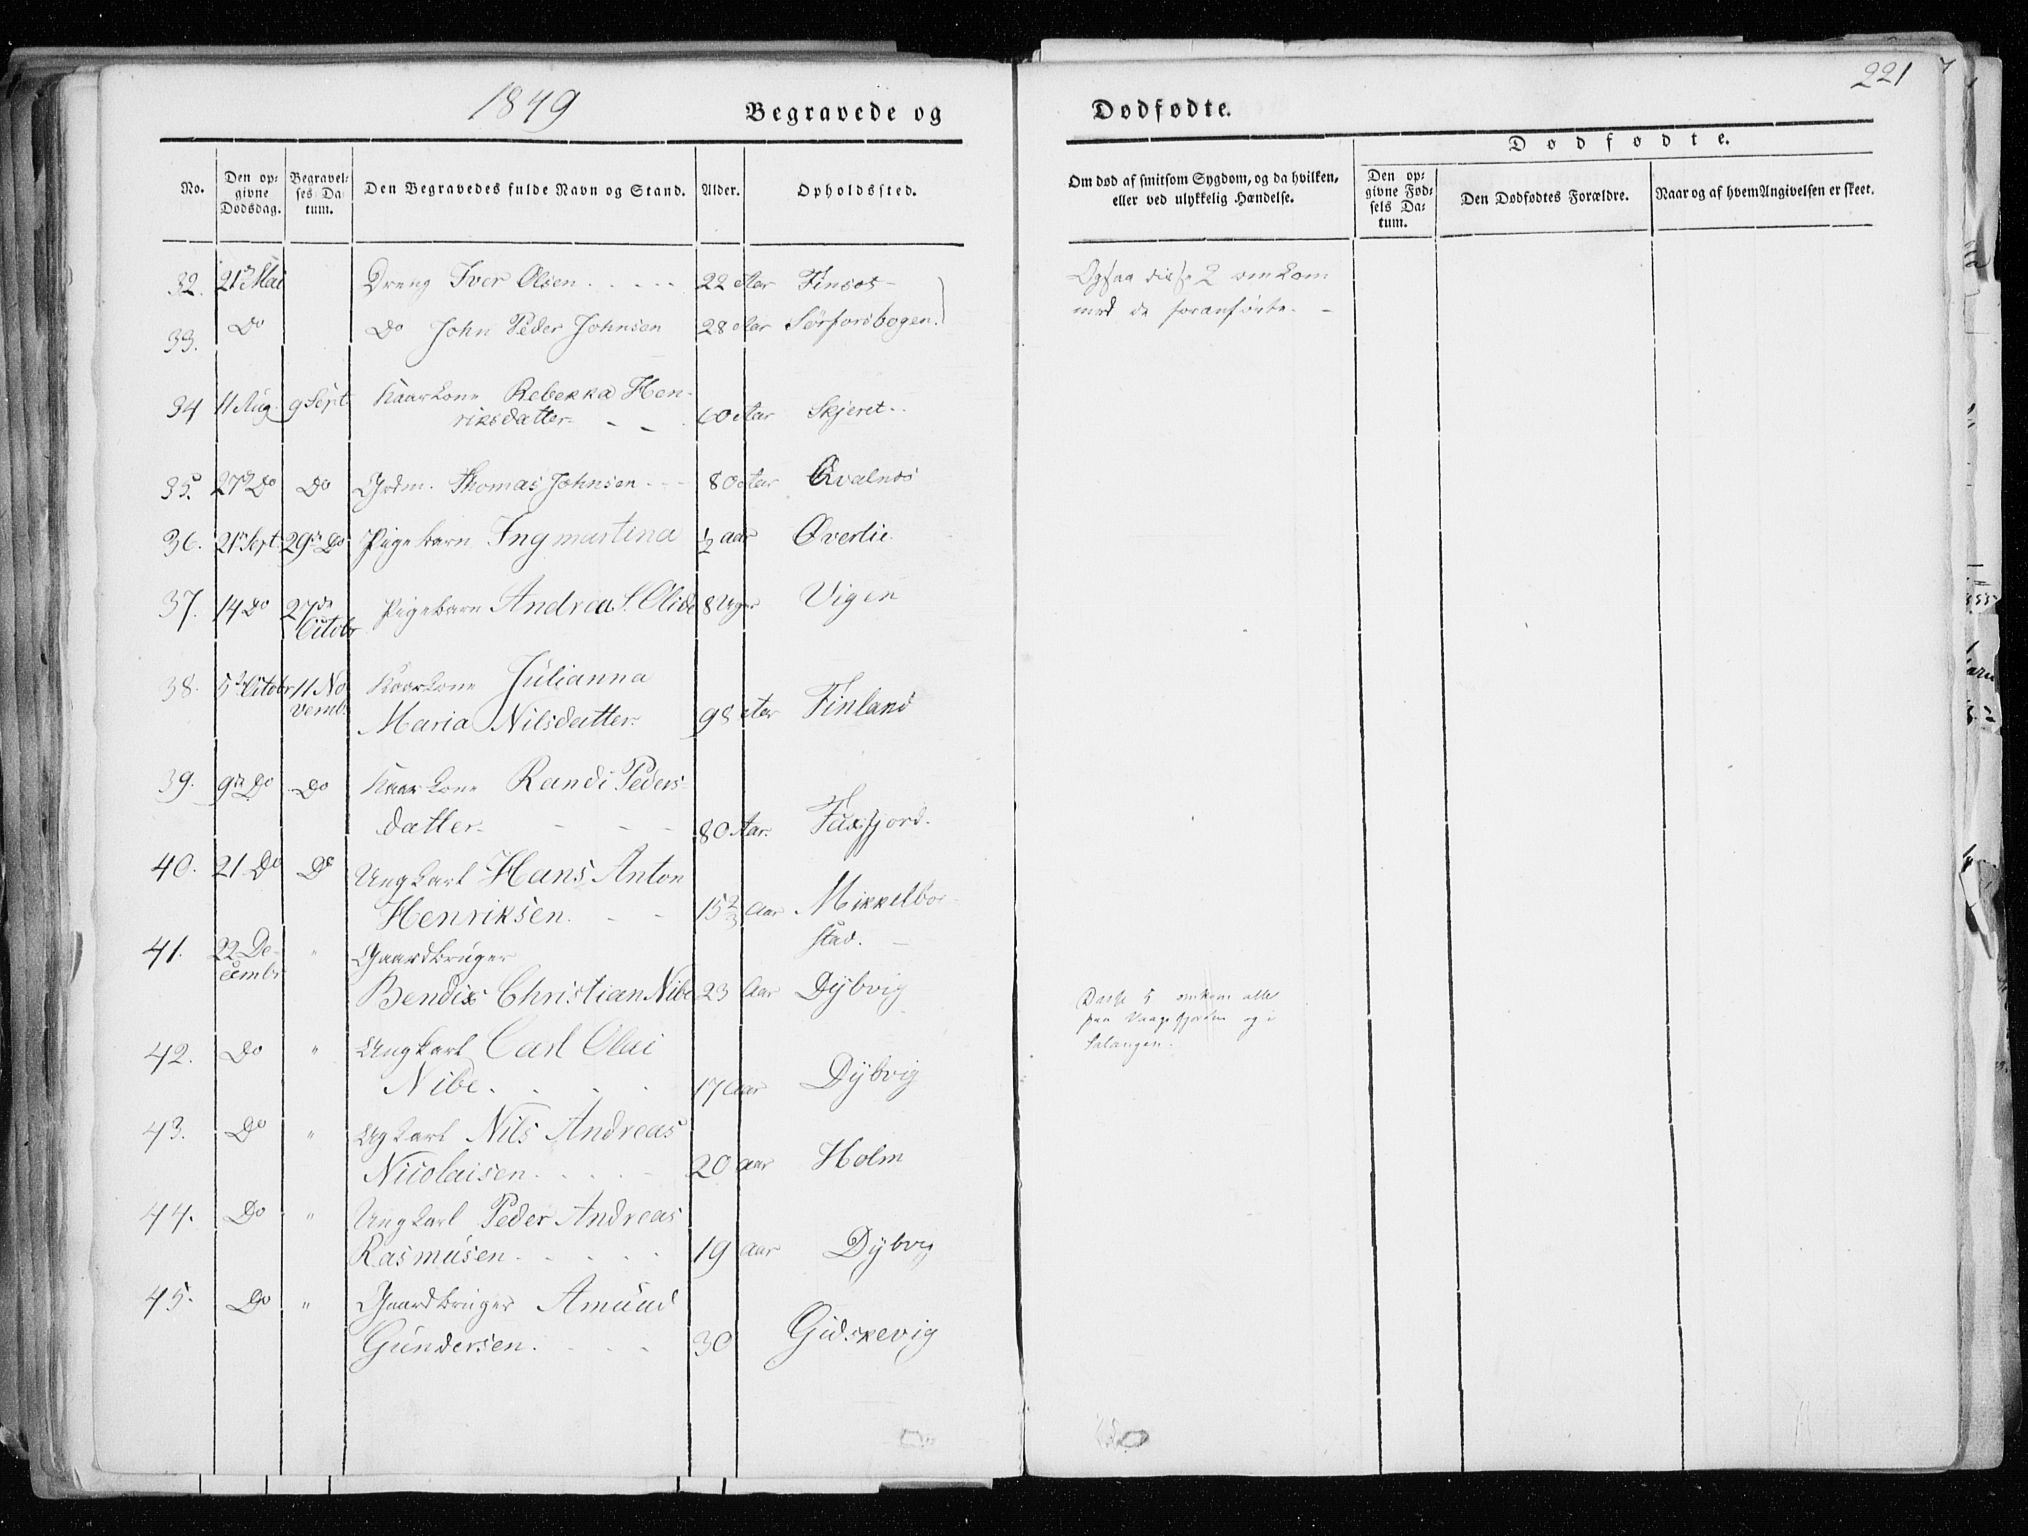 1849
Begravede og
Dødfødte.
221
No.
Den opgivne Dødsdag.
Begravelses Datum.
Den Begravedes fulde Navn og Stand.
Alder.
Opholdssted.
Om død af smitsom Sygdom, og da hvilken, eller ved ulykkelig Hændelse.
Dødfødte.
Den opgivne Fødsels Datum.
Den Dødfødtes Forældre.
Naar og af hvem Angivelsen er skeet.
32. 21 Mai Dreng Iver Olsen 22 Aar Finsæs
Ogsaa disse 2 omkom
med de foranførte.
33. Do Do John Peder Johnsen 28 Aar Sørforsbogen.
34 11 Aug. 9 Sept Kaarkone Rebekka Hen-
riksdatter 60 Aar Skjeret
35. 27 Do Do Grdm. Thomas Johnsen 80 Aar Qvalnæs
36. 21 Sept 29 Do Pigebarn Ingmartina ½ aar Øverlie
37. 14 Do 27de
Octobr Pigebarn Andrea S. Olide 8 Uger Vigen
38. 5 Octobr 11 No
vemb. Kaarkone Julianna
Maria Nilsdatter 98 Aar Finland
39. 9 Do Do Kaarkone Randi Peders-
datter 80 Aar. Faxfjord.
40. 21 Do Do Ungkarl Hans Anton
Henriksen. 15 2/3 Aar Mikkelbo-
stad.
41. 22 De-
cembr " Gaardbruger
Bendix Christian Nibe 23 Aar Dybvig
Disse 5 omkom alle
paa Vaagsfjorden og i
Salangen.
42. Do " Ungkarl Carl Olai
Nibe. 17 Aar Dybvig
43. Do " Ugkarl Nils Andreas
Nicolaisen 20 aar Holm
44. Do " Ungkarl Peder Andreas
Rasmusen 19 aar Dybvig
45. Do " Gaardbruger Amund
Gundersen. 30 Gidskevig